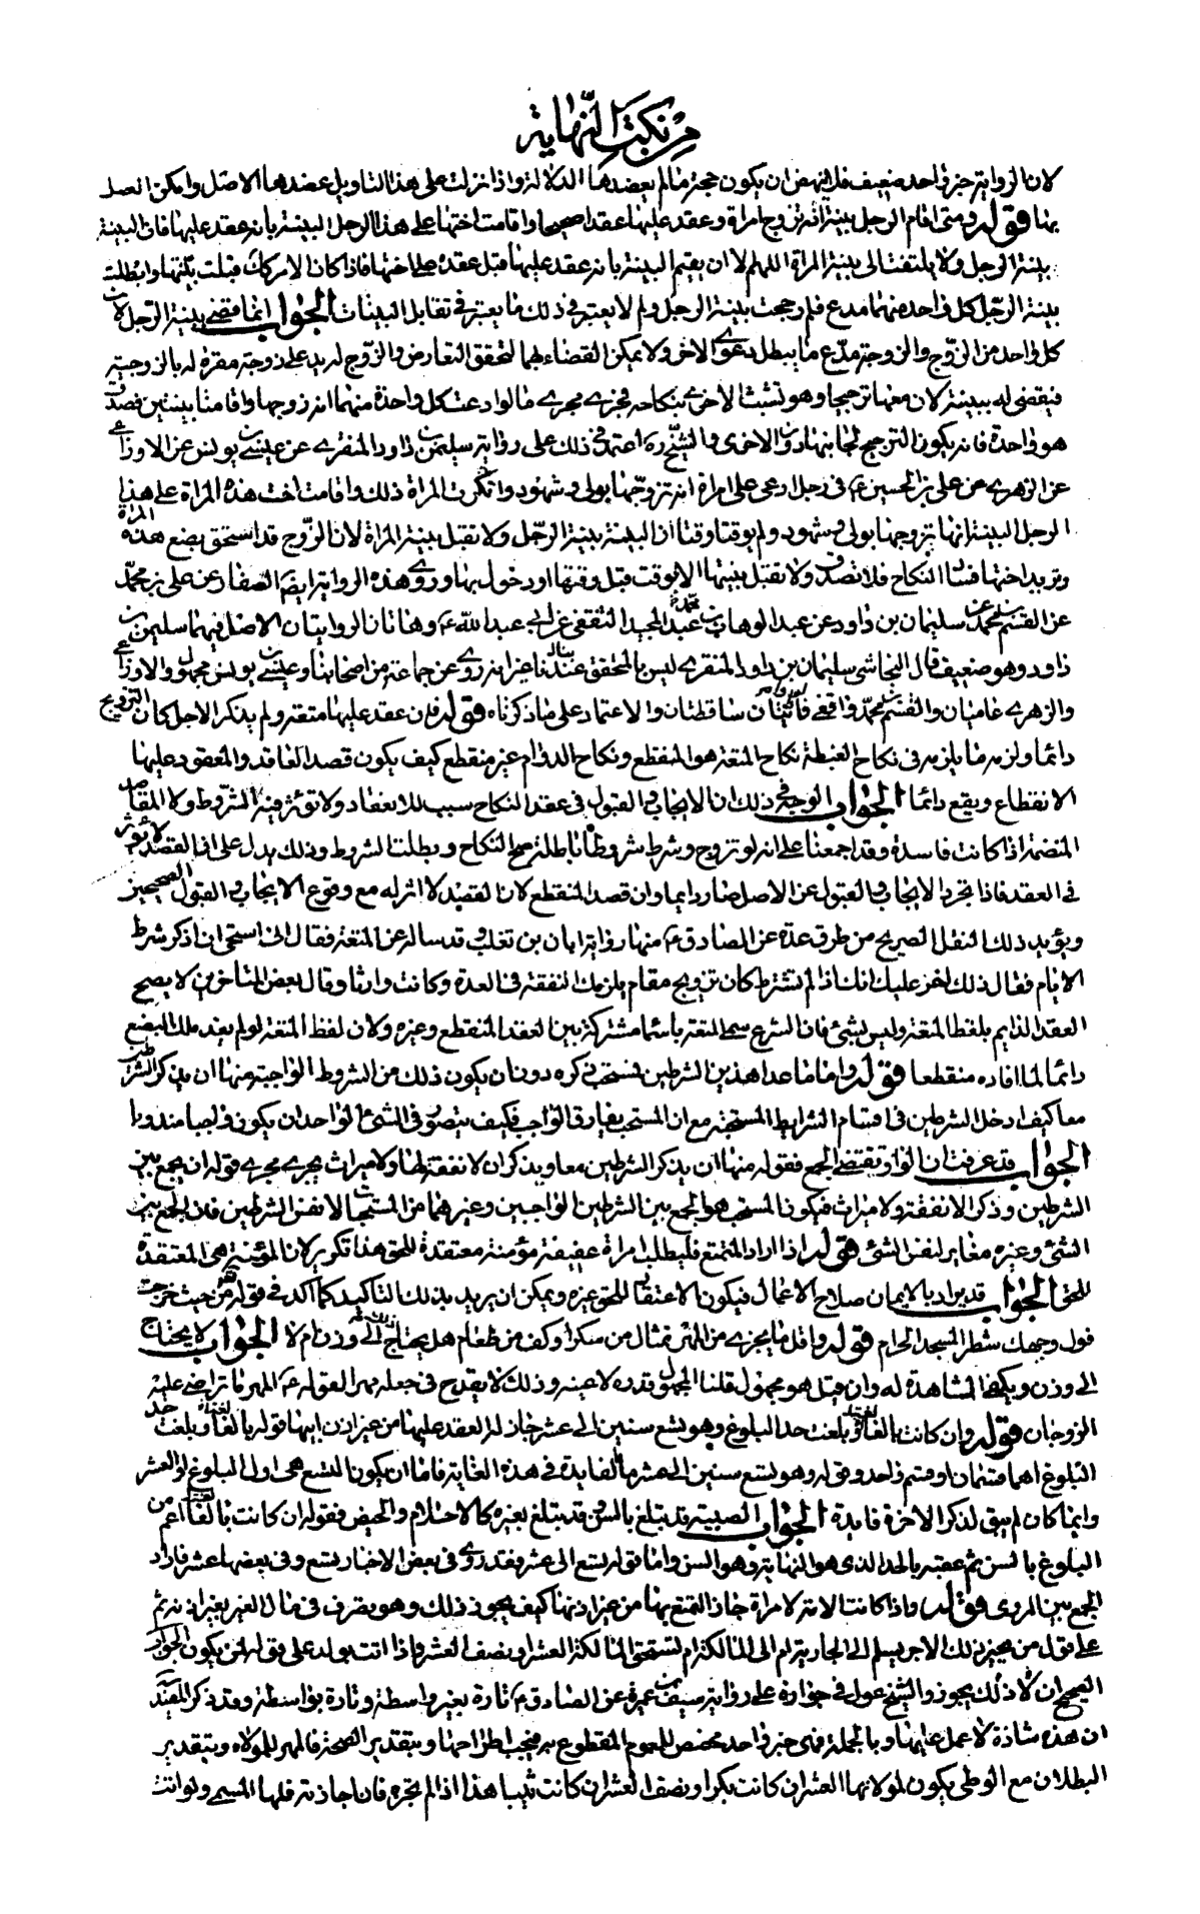 من نكت النهاية
لان الرواية خبر واحد ضعيف فلا ينهض ان يكون حجة ما لم يعضدها الدلالة واذا نزلت على هذا التاويل عضدها الاصل وامكن العمل
بها قوله ومتى اقام الرجل بينة انه تزوج امراة وعقد عليها عقدا صحيحا واقامت اختها على هذا الرجل البينة بانه عقد عليها فان البينة
بينة الرجل ولا يلتفت الى بينة المراة اللهم الا ان يقيم البينة بانه عقد عليها قبل عقده على اختها فاذا كان الامر كك قبلت بينتها وابطلت
بينة الرجل كل واحد منهما مدع فلم رجحت بينة الرجل ولم لا يعتبر في ذلك ما يعتبر في تقابل البينات الجواب انما قضى ببينة الرجل لان
كل واحد من الزوج والزوجة مدع ما يبطل دعوى الاخر ولا يمكن القضاء لهما لتحقق التعارض والزوج له يد على زوجة مقرة له بالزوجية
فيقضى له ببينة لان معها ترجيحا وهو تشبث الاخرى بنكاحه فجرى مجرى ما لو ادعت كل واحدة منهما انه زوجها واقامتا بينتين فصدق
هو واحدة فانه يكون الترجيح لجانبها دون الاخرى والشيخ ره اعتمد في ذلك على رواية سليمن بن داود المنقري عن عيسى بن يونس عن الاوزاعي
عن الزهري عن علي بن الحسين ع في رجل ادعى على امراة انه تزوجها بولي وشهود وانكرت المراة ذلك واقامت اخت هذه المراة على هذا
الرجل البينة انها تزوجها بولي وشهود ولم يوقتا وقتا ان البينة بينة الرجل ولا تقبل بينة المراة لان الزوج قد استحق بضع هذه المراة
وتريد اختها فساد النكاح فلا تصدق ولا تقبل بينتها الا بوقت قبل وقتها او دخول بها وروى هذه الرواية ايضا الصفار عن علي بن محمد
عن القسم بن محمد عن سليمان بن داود عن عبد الوهاب بن عبد المجيد الثقفي عن ابي عبد الله ع وهاتان الروايتان الاصل فيهما سليمن بن
داود وهو ضعيف قال النجاشي سليمان بن داود المنقري ليس بالمتحقق عندنا غير انه روى عن جماعة من اصحابنا وعيسى بن يونس مجهول والاوزاعي
والزهري عاميان والقسم بن محمد واقفي ساقطتان والاعتماد على ما ذكرناه قوله فان عقد عليها متعة ولم يذكر الاجل كان التزويج
دائما ولزمه ما يلزمه في نكاح الغبطة نكاح المتعة هو المنقطع ونكاح الدوام غير منقطع كيف يكون قصد العاقد والمعقود عليها
الانقطاع ويقع دائما الجواب الوجه في ذلك ان الايجاب والقبول في عقد النكاح سبب للانعقاد ولا تؤثر فيه الشروط ولا المقاصد
المتضمنة اذا كانت فاسدة وقد اجمعنا على انه لو تزوج وشرط شروطا باطلة صح النكاح وبطلت الشروط وذلك يدل على ان القصد لا يؤثر
في العقد فاذا تجرد الايجاب والقبول عن الاصل صار دايما وان قصد المنقطع لان لقصد لا اثر له مع وقوع الايجاب والقبول الصحيحين
ويؤيد ذلك النقل الصريح من طرق عدة عن الصادق ع منها رواية ابان بن تغلب وقد ساله عن المتعة فقال اني استحي ان اذكر شرط
الايام فقال ذلك اضر عليك انك اذا لم تشترط كان تزويج مقام يلزمك النفقة في العدة وكانت وارثا وقال بعض المتاخرين لا يصح
العقد الدايم بلفظ المتعة وليس بشئ فان الشرع سمى المتعة باسما مشتركة بين العقد المنقطع وغيره ولان لفظ المتعة لو لم يفد ملك البضع
دائما لما افاده منقطعا قوله واما ما عدا هذين الشرطين فمستحب ذكره دون ان يكون ذلك من الشروط الواجبة منها ان يذكر الشرطين
معا كيف ادخل الشرطين في اقسام الشرايط المستحبة مع ان المستحب يفارق الواجب فكيف يتصور في الشئ الواحد ان يكون واجبا مندوبا
الجواب قد عرفت ان الواو تقتضي الجمع فقوله منها ان يذكر الشرطين معا ويذكر ان لا نفقة لها ولا ميراث يجرى مجرى قوله ان يجمع بين
الشرطين وذكر الا نفقة ولا ميراث فيكون المستحب هو الجمع بين الشرطين الواجبين وغيرهما من المستحبات لا نفس الشرطين فان الجمع بين
الشئ وغيره مغاير لنفس الشئ قوله اذا اراد المتمتع فليطلب امراة عفيفة مؤمنة معتقدة للحق هذا تكرير لان المؤمنة هي المعتقدة
للحق الجواب قد يراد بالايمان صلاح الاعمال فيكون الاعتقاد للحق غيره ويمكن ان يريد بذلك التاكيد كما اكد في قوله ومن حيث خرجت
فول وجهك شطر المسجد الحرام قوله واقل ما يجزي من المهر تمثال من سكر او كف من طعام هل يحتاج ذلك الى وزن ام لا الجواب لا يحتاج
الى وزن ويكفي المشاهدة له وان قيل هو مجهول قلنا المجهول قدره لا عينه وذلك لا يقدح في جعله مهرا لقوله ع المهر ما تراضى عليه
الزوجان قوله وان كانت بالغا وقد بلغت حد البلوغ وهو تسع سنين الى عشر جاز له العقد عليها من غير اذن ابيها قوله بالغا وبلغت حد
البلوغ اهما قسمان او قسم واحد وقوله وهو تسع سنين الى عشر ما الفايدة في هذه الغاية فاما ان يكون التسع هي اول البلوغ او العشر
وايما كان لم يبق لذكر الاخرة فايدة الجواب الصبية قد تبلغ بالسن وقد تبلغ بغيره كالاحتلام والحيض فقوله ان كانت بالغا اعم من
البلوغ بالسن ثم عقبه بالحد الذي هو النهاية وهو السن واما قوله تسع الى عشر فقد روى في بعض الاخبار تسع وفي بعضها عشر فاراد
الجمع بين المروى قوله واذا كانت الامة لامراة جاز التمتع بها من غير اذنها كيف يجوز ذلك وهو تصرف في مال الغير بغير اذنه ثم
على قول من يجيز ذلك الاجر يسلم الى الجارية ام الى المالكة ام تستحق المالكة العشر او نصف العشر واذا اتت بولد على قوله لمن يكون الجواب
الصحيح ان ذلك لا يجوز والشيخ عول في جوازه على رواية سيف بن عميرة عن الصادق ع تارة بغير واسطة وتارة بواسطة وقد ذكر المفيد
ان هذه شاذة لا عمل عليها وبالجملة فهي خبر واحد مخصص للعموم المقطوع به فيجب اطراحها وبتقدير الصحة فالمهر للمولاة وبتقدير
البطلان مع الوطي يكون لمولاتها العشر ان كانت بكرا ونصف العشر ان كانت ثيبا هذا اذا لم تجزه فان اجازته فلها المسمى ولو اتت